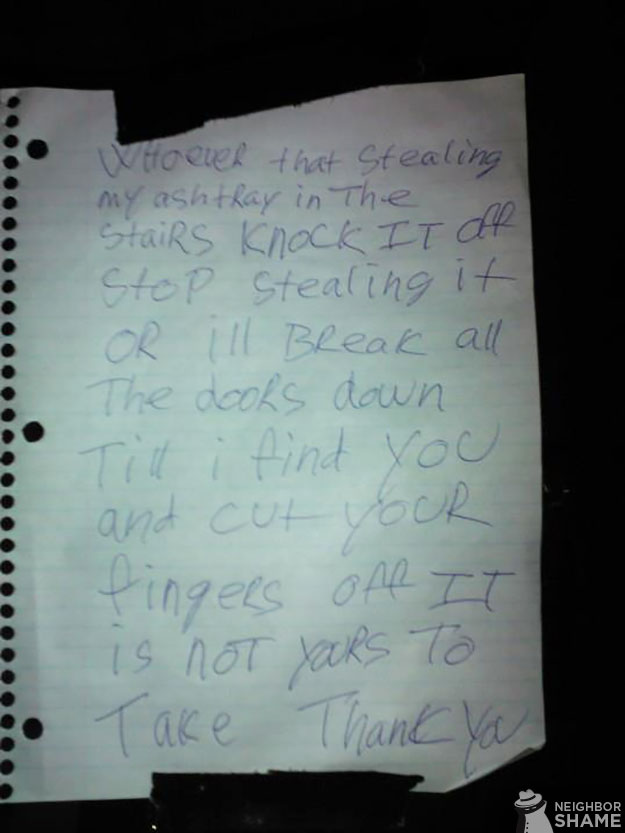 WHoever that stealing
my ashtRay in The
StaiRS KNOCK IT off
StoP stealing it
OR ill BReak all
The dooRs down
Till i find YOU
and cut YOUR
fingers off IT
is NOT YOURS TO
Take Thank You
NEIGHBOR
SHAME